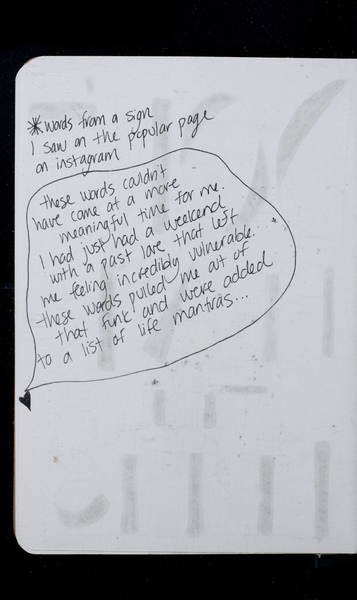 *words from a sign
I saw on the popular page
on instagram
these words couldn't
have come at a more
meaningful time for me.
I had just had a weekend
with a past love that left
me feeling incredibly vulnerable...
these words pulled me out of
that funk and were added
to a list of life mantras...